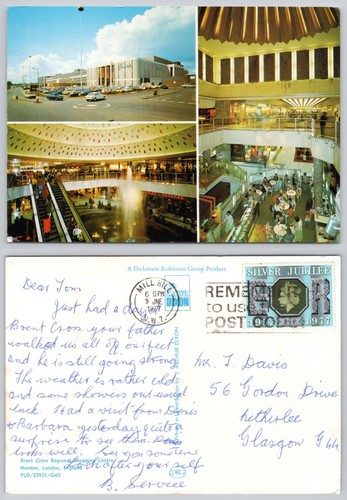 A Dickinson Robinson Group Product
Dear Tom
Just had a day
Brent Cross your father
walked us all off our feet
and he is still going strong
The weather is rather cold
and some showers our usual
luck. Had a visit from Doris
& Barbara yesterday quite
surprise to see them. Doris
looks well. See you sometime
look after yourself
B. Service
Brent Cross Regional Shopping Centre
Hendon, London, England
PLO/22933/GHS
DRG
MILL HILL
6 15PM
9 JNE
1977
N.W.7.
DIXON
REME
to use
POST
SILVER JUBILEE
E R
1977
Mr. T. Davis
56 Gordon Drive
Netherlee
Glasgow G44